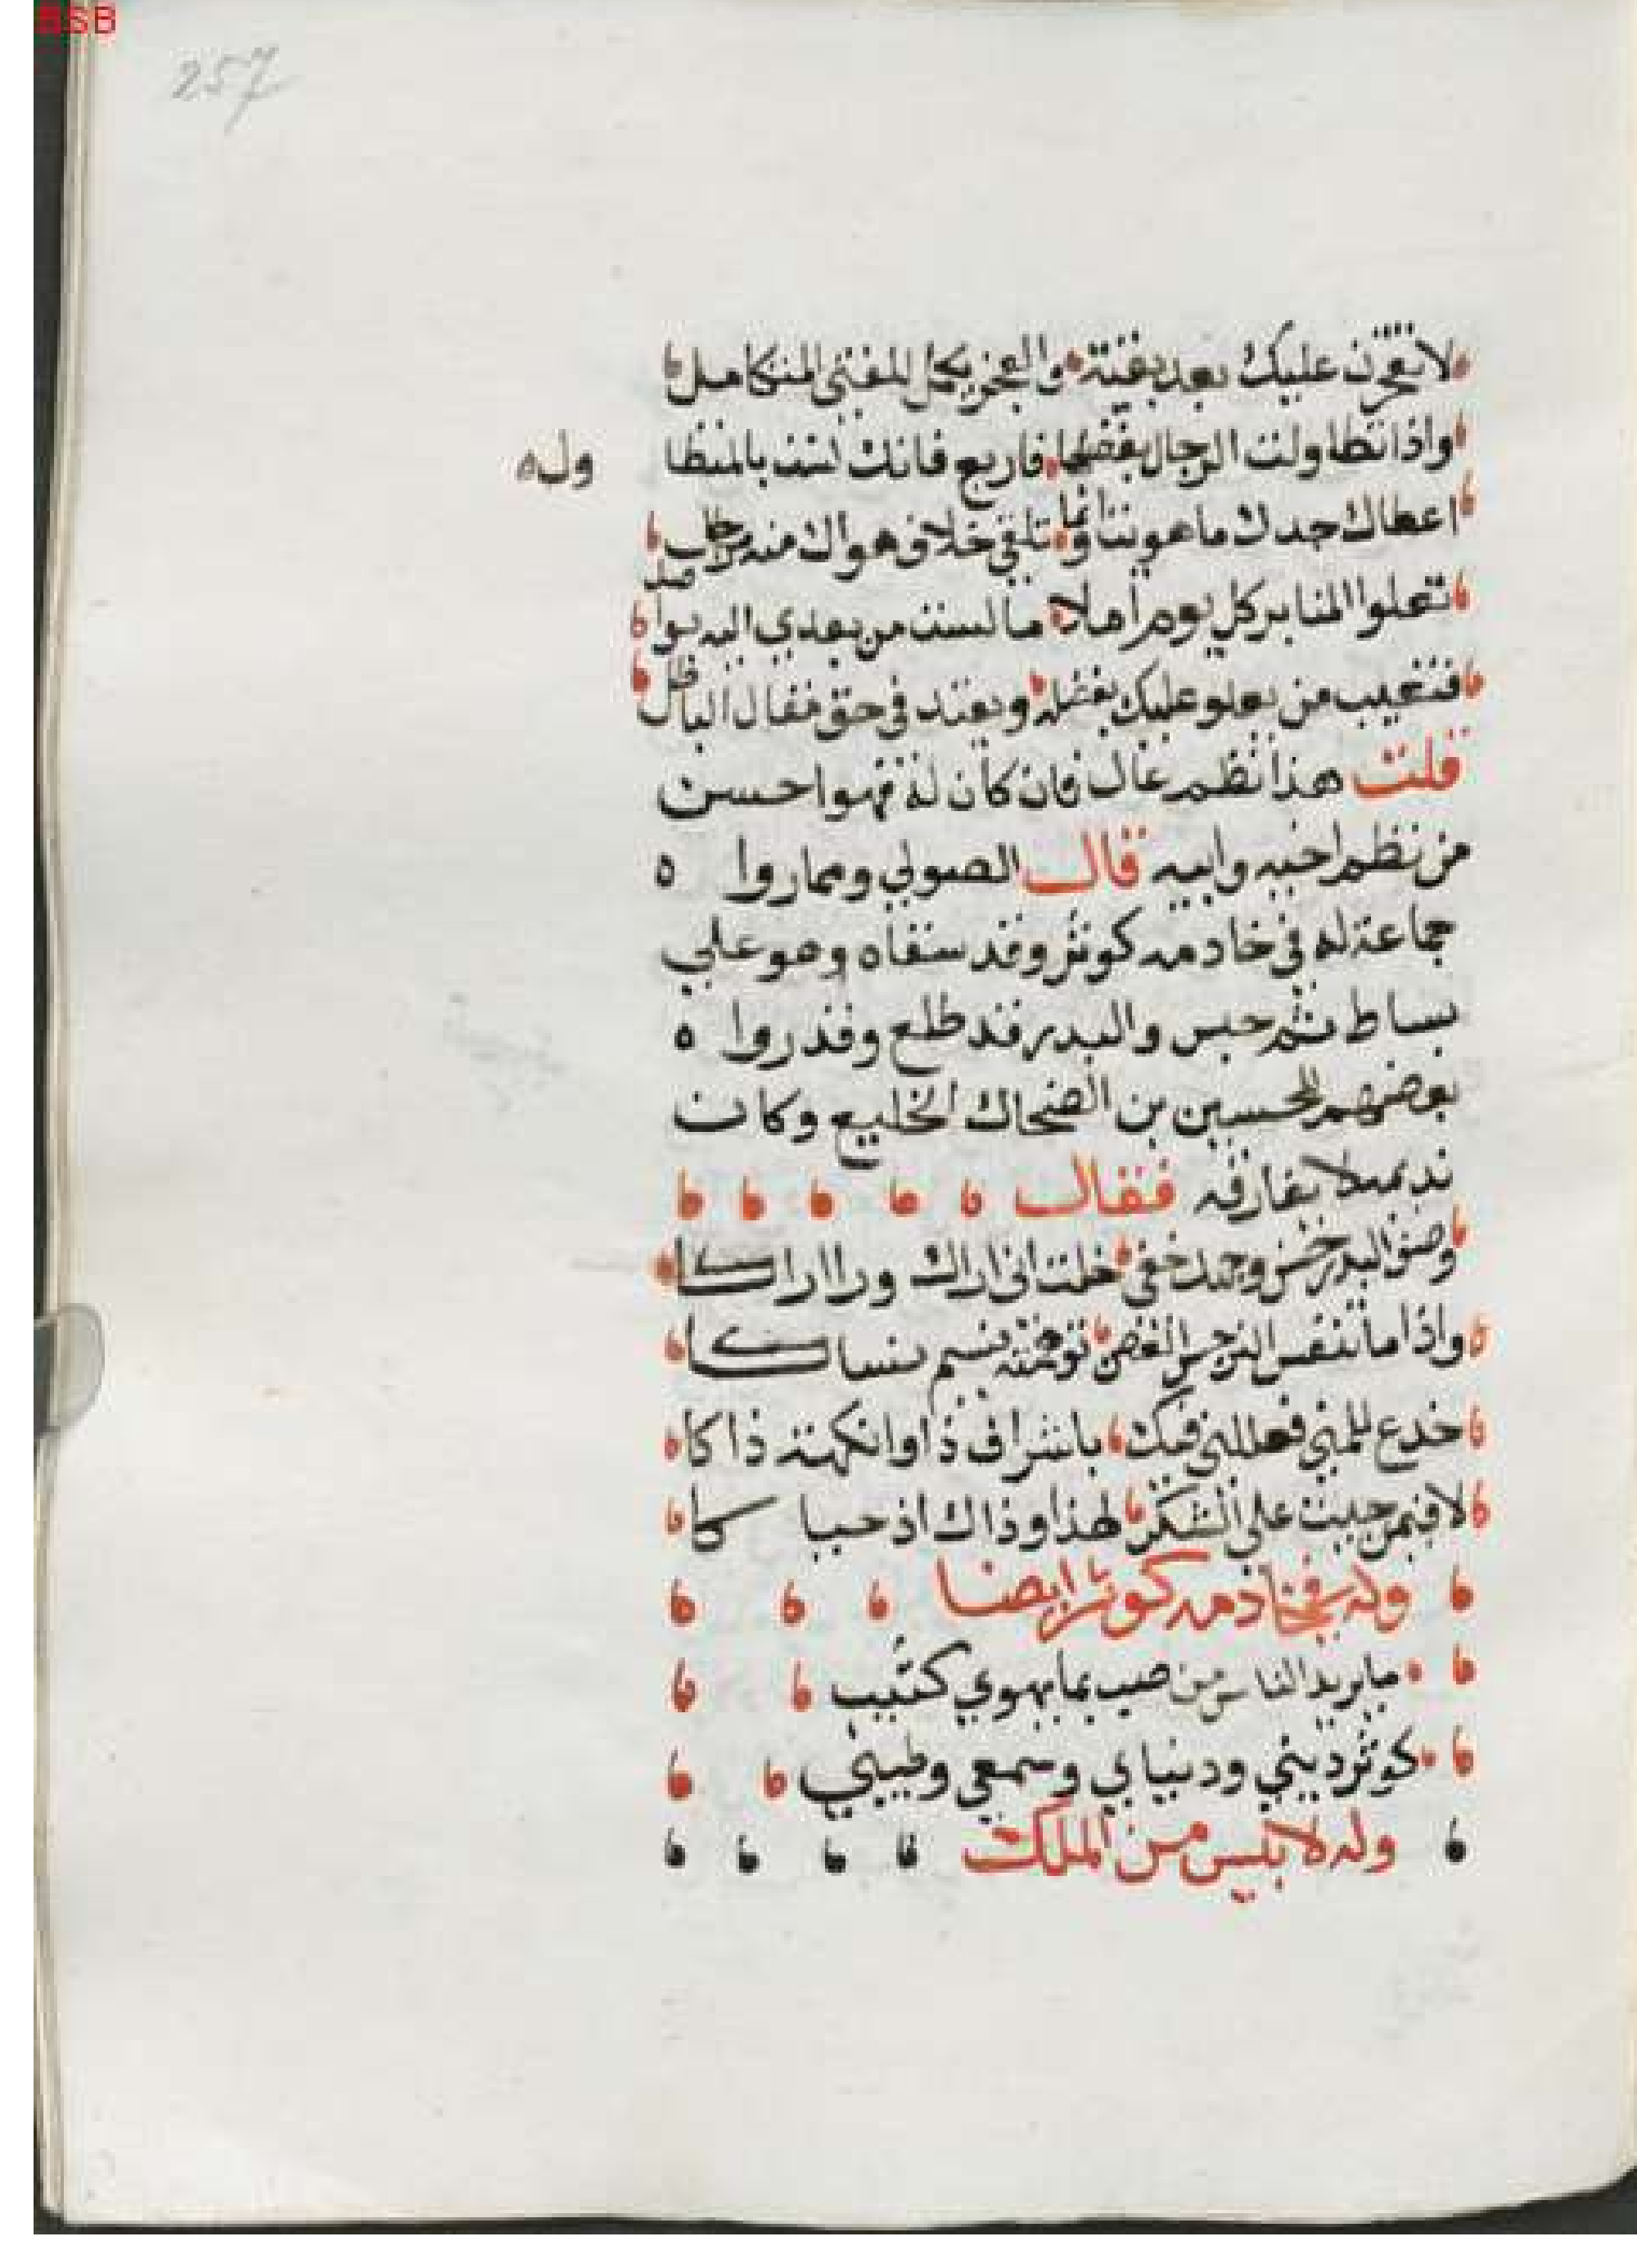 BSB
257
لا تفخرن عليك بعد بقية والفخر يكمل للفتى المتكامل
واذا تطاولت الرجال بفضلها فاربع فانك لست بالمتطا ول
اعطاك جدك ما هويت وانما تلقى خلاف هواك منه مراجل
تعلوا المنابر كل يوم املا ما لست من بعدي اليه بوا صل
فتعيب من يعلو عليك بفضله ويعتد في حقي مقال الباطل
قلت هذا نظم عال فان كان له فهوا حسن
من نظم اخيه وابيه قال الصولي ومما روا
جماعة له في خادمه كوثر وقد سقاه وهو على
بساط نرجس والبدر قد طلع وقد روا
بعضهم للحسين بن الضحاك الخليع وكان
نديمه لا يفارقه فقال
وصف البدر حسن وجهك حتى خلت اني اراك ورا اراكا
واذا ما تنفس النرجس الغض توهمته نسيم نساكا
خدع للمنى تعللني فيك باشراق ذا وانكهة ذا كا
لاقيمن حييت على الشكر لهذا وذاك اذ حبا كا
وله في خادمه كوثر ايضا
ما يريد الناس من صب بما يهوي كئيب
كوثر ديني ودنياي وسمعي وطبيبي
وله لا بيس من الملك